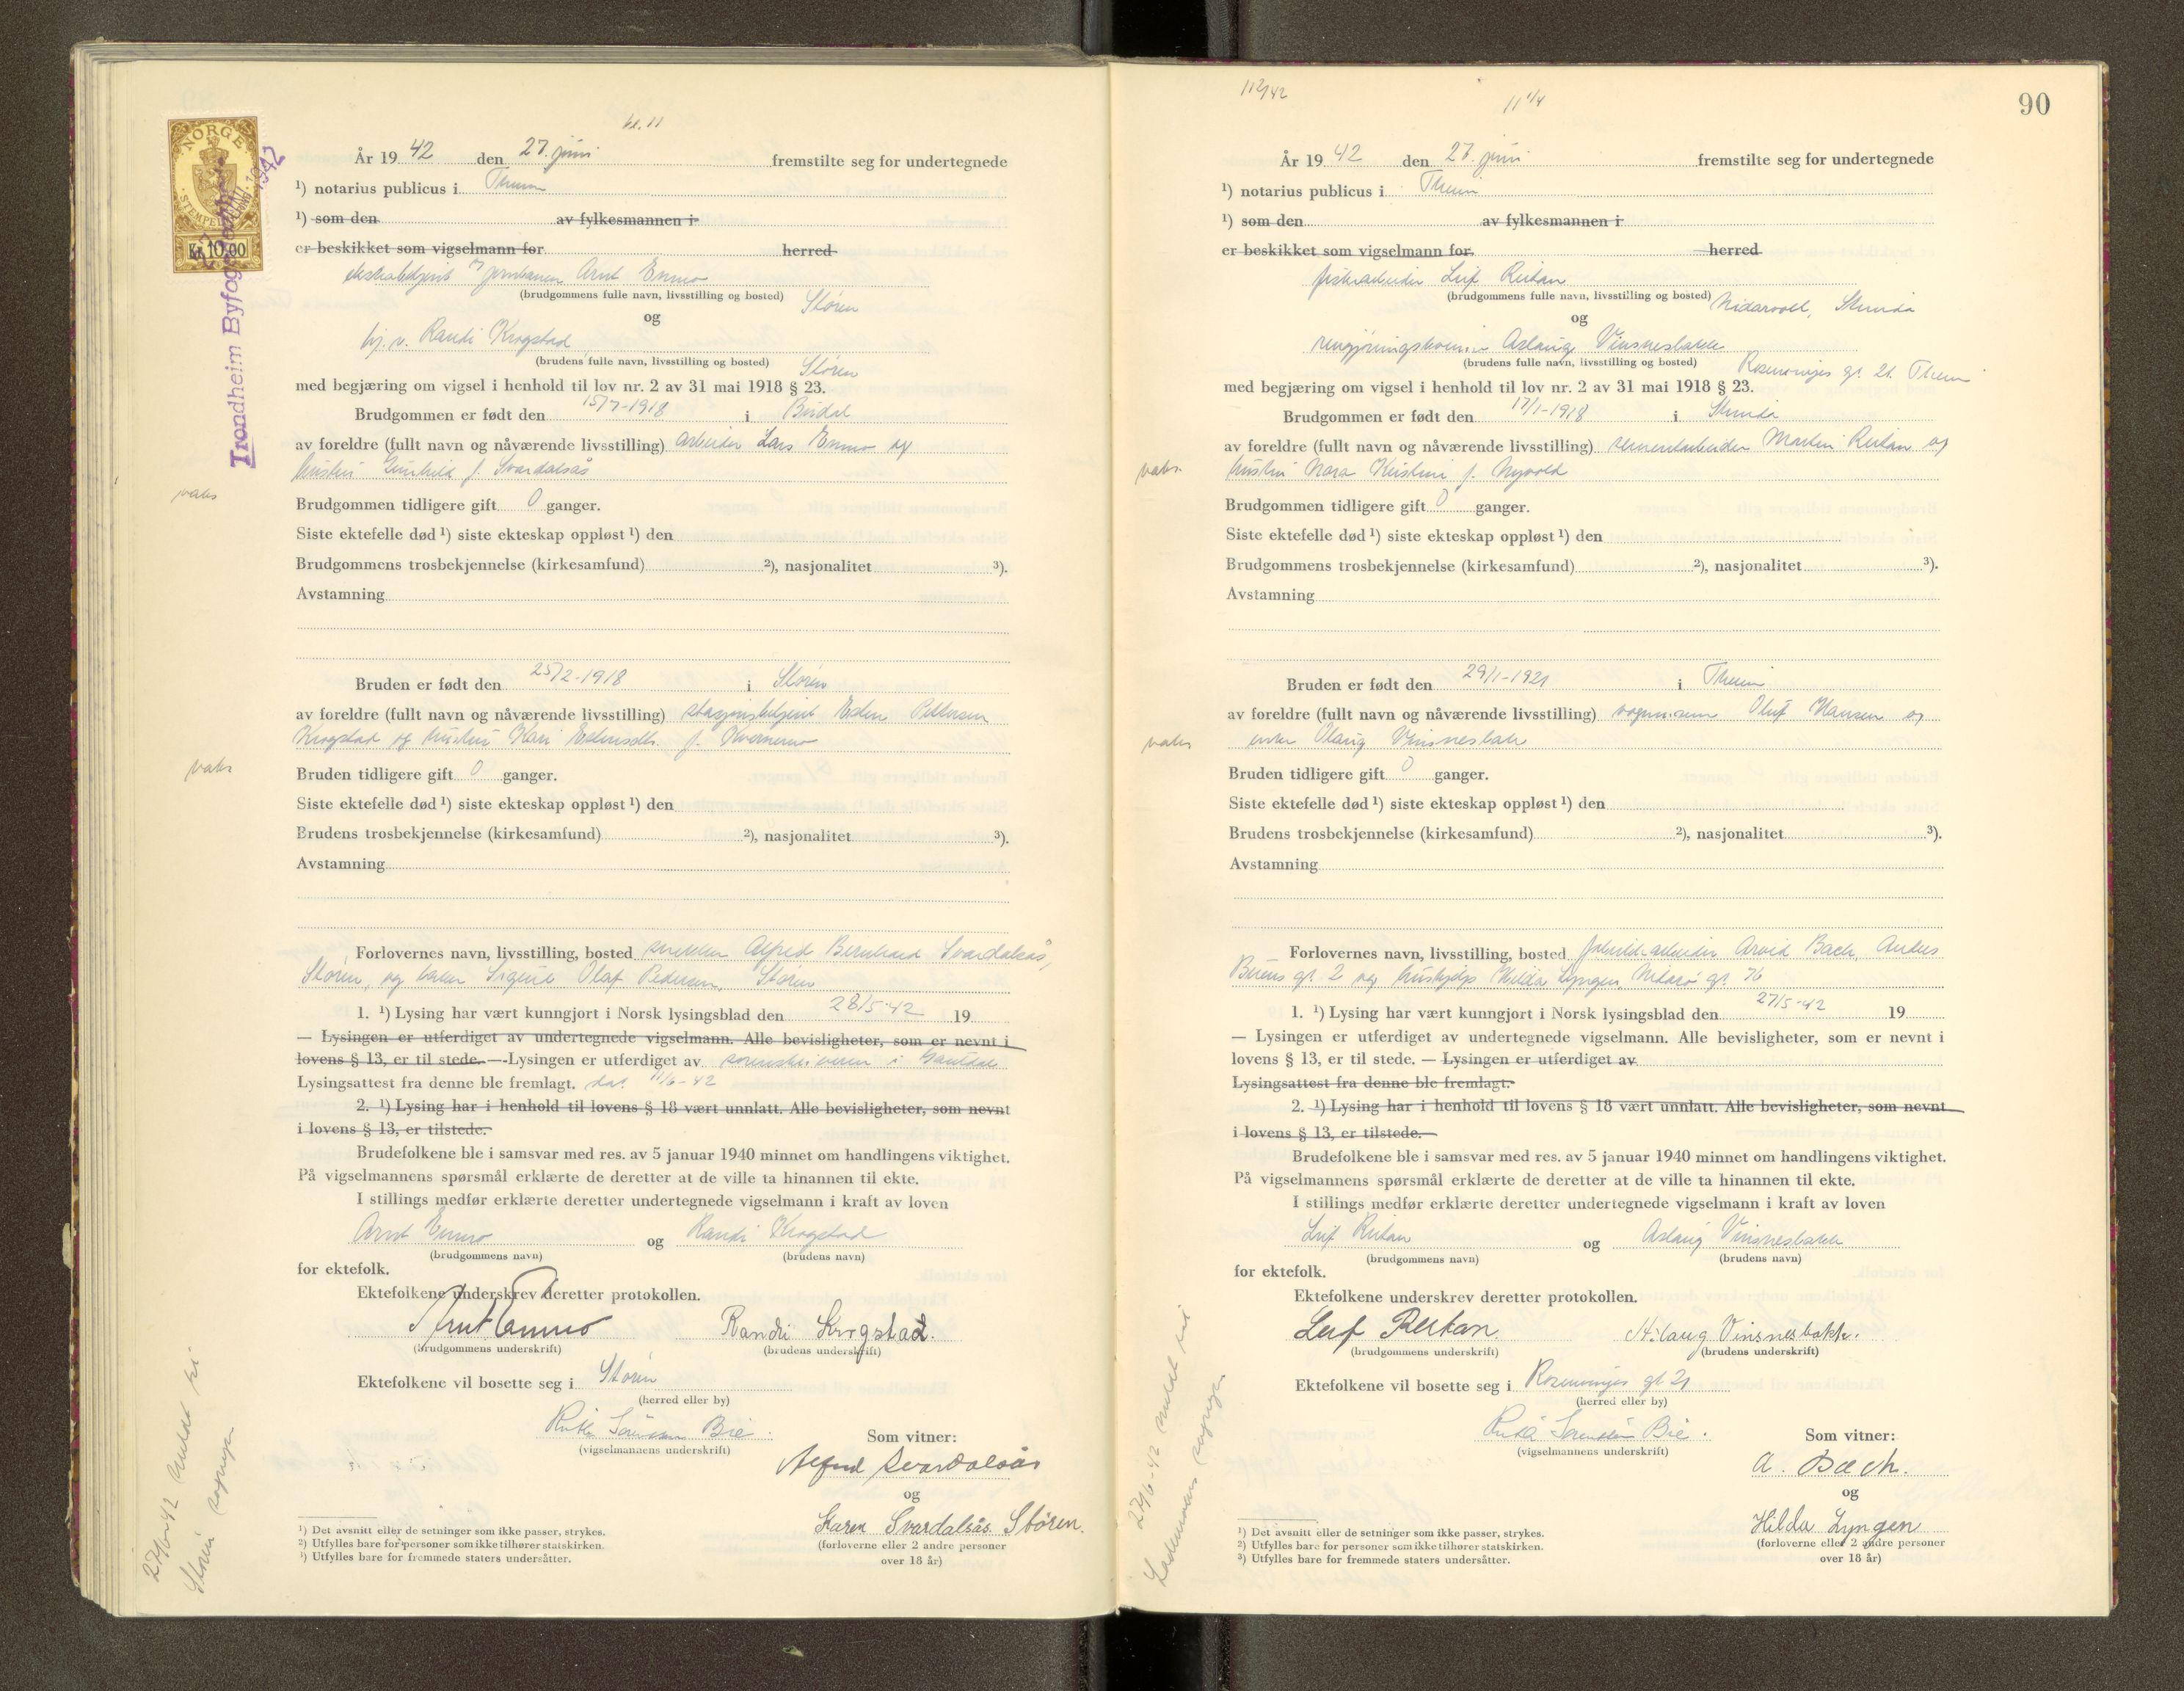 kl. 11
År 19 42 den 27. juni fremstilte seg for undertegnede
¹) notarius publicus i Thrm
¹) som den av fylkesmannen i
er beskikket som vigselmann for herred
ekstrabetjent v/ jernbanen Arnt Enmo
(brudgommens fulle navn, livsstilling og bosted) Støren
og
hj. v. Randi Krogstad
(brudens fulle navn, livsstilling og bosted) Støren
med begjæring om vigsel i henhold til lov nr. 2 av 31 mai 1918 § 23.
Brudgommen er født den 15/7-1918 i Budal
av foreldre (fullt navn og nåværende livsstilling) arbeider Lars Enmo og
hustru Gunhild f. Svardalsås
vaks
Brudgommen tidligere gift 0 ganger.
Siste ektefelle død ¹) siste ekteskap oppløst ¹) den
Brudgommens trosbekjennelse (kirkesamfund) ²), nasjonalitet ³).
Avstamning
Bruden er født den 25/2-1918 i Støren
av foreldre (fullt navn og nåværende livsstilling) stasjonsbetjent Esten Pettersen
Krogstad og hustru Kari Estensdtr. f.
vaks
Bruden tidligere gift 0 ganger.
Siste ektefelle død ¹) siste ekteskap oppløst ¹) den
Brudens trosbekjennelse (kirkesamfund) ²), nasjonalitet ³).
Avstamning
Forlovernes navn, livsstilling, bosted snekker Alfred Bernhard Svardalsås,
Støren, og Sigurd Olaf Pedersen, Støren
1. ¹) Lysing har vært kunngjort i Norsk lysingsblad den 28/5-42 19
— Lysingen er utferdiget av undertegnede vigselmann. Alle bevisligheter, som er nevnt i
lovens § 13, er til stede. — Lysingen er utferdiget av sorenskriveren i Gauldal
Lysingsattest fra denne ble fremlagt. dat. 11/6-42
2. ¹) Lysing har i henhold til lovens § 18 vært unnlatt. Alle bevisligheter, som nevnt
i lovens § 13, er tilstede.
Brudefolkene ble i samsvar med res. av 5 januar 1940 minnet om handlingens viktighet.
På vigselmannens spørsmål erklærte de deretter at de ville ta hinannen til ekte.
I stillings medfør erklærte deretter undertegnede vigselmann i kraft av loven
Arnt Enmo og Randi Krogstad
(brudgommens navn) (brudens navn)
for ektefolk.
Ektefolkene underskrev deretter protokollen.
Arnt Enmo Randi Krogstad.
(brudgommens underskrift) (brudens underskrift)
Ektefolkene vil bosette seg i Støren
(herred eller by)
Sørensen Bie.
(vigselmannens underskrift)
Som vitner:
Alfred Svardalsås
og
Karen Svardalsås Støren.
(forloverne eller 2 andre personer
over 18 år)
¹) Det avsnitt eller de setninger som ikke passer, strykes.
²) Utfylles bare for personer som ikke tilhører statskirken.
³) Utfylles bare for fremmede staters undersåtter.
27/6-42 meldt til
Støren sogn
NORGE
STEMPEL
Kr. 10.00
Trondheim Byfogd
1942
112/42
11 1/4
90
År 19 42 den 27. juni fremstilte seg for undertegnede
¹) notarius publicus i Thrm
¹) som den av fylkesmannen i
er beskikket som vigselmann for herred
fiskearbeider Leif Reitan
(brudgommens fulle navn, livsstilling og bosted) Nidarvoll, Strinda
og
rengjøringskvinne Aslaug Vinsnesbakk
(brudens fulle navn, livsstilling og bosted) Rosenborgs gt. 21. Thrm
med begjæring om vigsel i henhold til lov nr. 2 av 31 mai 1918 § 23.
Brudgommen er født den 17/1-1918 i Strinda
av foreldre (fullt navn og nåværende livsstilling) sementarbeider Martin Reitan og
vaks.
hustru Nora Kristine f. Nyvold
Brudgommen tidligere gift 0 ganger.
Siste ektefelle død ¹) siste ekteskap oppløst ¹) den
Brudgommens trosbekjennelse (kirkesamfund) ²), nasjonalitet ³).
Avstamning
Bruden er født den 29/1-1921 i Thrm
av foreldre (fullt navn og nåværende livsstilling) Oluf Hansen og
vaks
Olaug Vinsnesbakk
Bruden tidligere gift 0 ganger.
Siste ektefelle død ¹) siste ekteskap oppløst ¹) den
Brudens trosbekjennelse (kirkesamfund) ²), nasjonalitet ³).
Avstamning
Forlovernes navn, livsstilling, bosted fabrikkarbeider Arvid Bach, Anders
Buens gt. 2 og hushjelp Hilda Lyngen, gt. 76
1. ¹) Lysing har vært kunngjort i Norsk lysingsblad den 27/5-42 19
— Lysingen er utferdiget av undertegnede vigselmann. Alle bevisligheter, som er nevnt i
lovens § 13, er til stede. — Lysingen er utferdiget av
Lysingsattest fra denne ble fremlagt.
2. ¹) Lysing har i henhold til lovens § 18 vært unnlatt. Alle bevisligheter, som nevnt
i lovens § 13, er tilstede.
Brudefolkene ble i samsvar med res. av 5 januar 1940 minnet om handlingens viktighet.
På vigselmannens spørsmål erklærte de deretter at de ville ta hinannen til ekte.
I stillings medfør erklærte deretter undertegnede vigselmann i kraft av loven
Leif Reitan og Aslaug Vinsnesbakk
(brudgommens navn) (brudens navn)
for ektefolk.
Ektefolkene underskrev deretter protokollen.
Leif Reitan. Aslaug Vinsnesbakk.
(brudgommens underskrift) (brudens underskrift)
Ektefolkene vil bosette seg i Rosenborgs gt 21
(herred eller by)
Sørensen Bie.
(vigselmannens underskrift)
Som vitner:
A. Bach.
og
Hilda Lyngen
(forloverne eller 2 andre personer
over 18 år)
¹) Det avsnitt eller de setninger som ikke passer, strykes.
²) Utfylles bare for personer som ikke tilhører statskirken.
³) Utfylles bare for fremmede staters undersåtter.
27/6-42 meldt til
Lademoen sogn